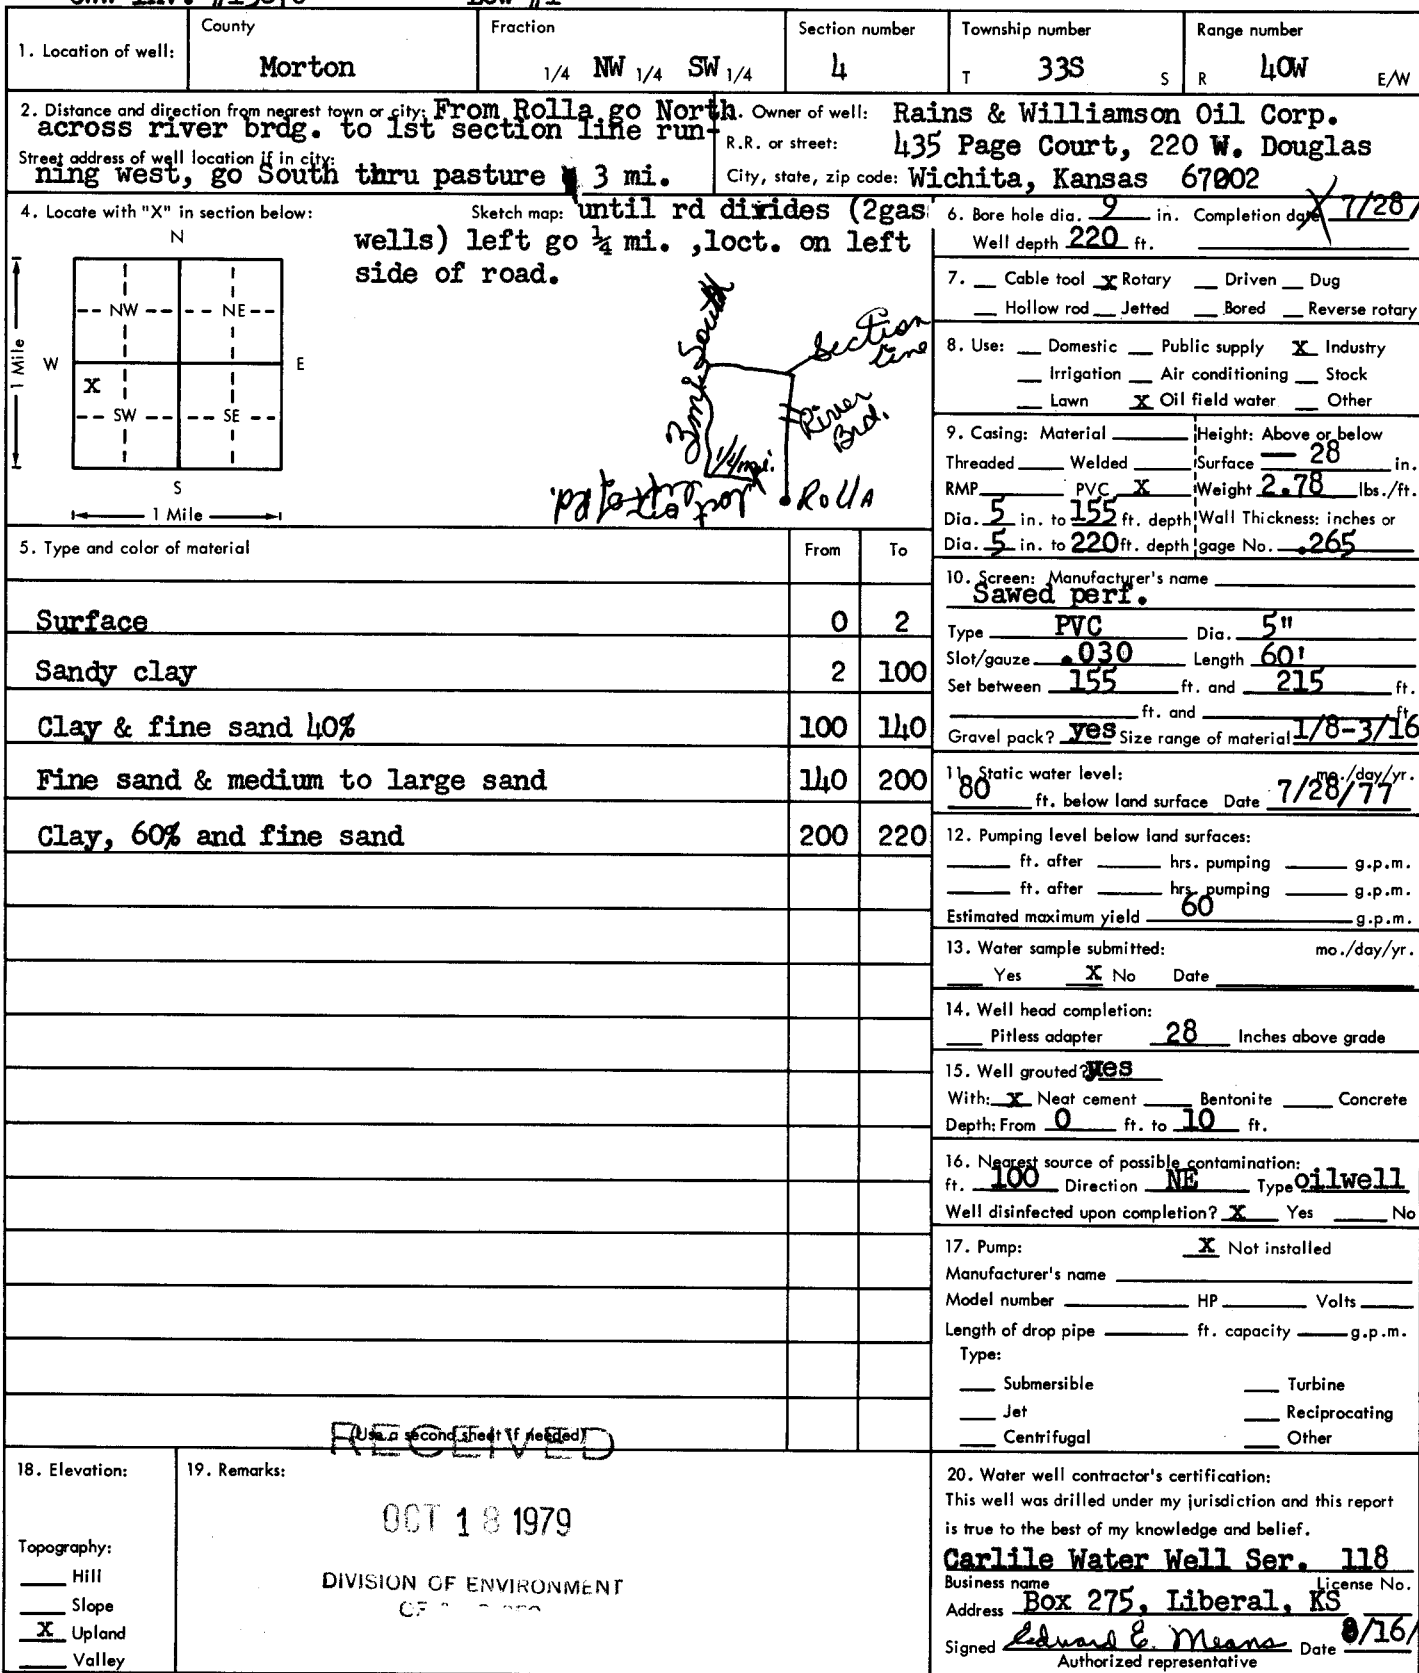 1. Location of well:
County
Morton
Fraction
1/4 NW 1/4 SW 1/4
Section number
4
Township number
T 33S S
Range number
R 40W E/W
2. Distance and direction from nearest town or city: From Rolla go North
across river brdg. to 1st section line run-
Street address of well location if in city:
ning west, go South thru pasture 3 mi.
until rd divides (2gas
wells) left go ¼ mi. ,loct. on left
side of road.
. Owner of well: Rains & Williamson Oil Corp.
R.R. or street: 435 Page Court, 220 W. Douglas
City, state, zip code: Wichita, Kansas 67002
4. Locate with "X" in section below:
N
NW NE
W E
X
SW SE
S
1 Mile
1 Mile
Sketch map:
3mi South
Section line
River Brd.
1/4 mi.
loct left of Rd.
Rolla
5. Type and color of material From To
Surface 0 2
Sandy clay 2 100
Clay & fine sand 40% 100 140
Fine sand & medium to large sand 140 200
Clay, 60% and fine sand 200 220
(Use a second sheet if needed)
RECEIVED
OCT 18 1979
DIVISION OF ENVIRONMENT
6. Bore hole dia. 9 in. Completion date 7/28/
Well depth 220 ft.
7. Cable tool X Rotary Driven Dug
Hollow rod Jetted Bored Reverse rotary
8. Use: Domestic Public supply X Industry
Irrigation Air conditioning Stock
Lawn X Oil field water Other
9. Casing: Material Height: Above or below
Threaded Welded Surface — 28 in.
RMP PVC X Weight 2.78 lbs./ft.
Dia. 5 in. to 155 ft. depth Wall Thickness: inches or
Dia. 5 in. to 220 ft. depth gage No. .265
10. Screen: Manufacturer's name
Sawed perf.
Type PVC Dia. 5"
Slot/gauze .030 Length 60'
Set between 155 ft. and 215 ft.
ft. and ft.
Gravel pack? yes Size range of material 1/8-3/16
11. Static water level: mo./day/yr.
80 ft. below land surface Date 7/28/77
12. Pumping level below land surfaces:
ft. after hrs. pumping g.p.m.
ft. after hrs. pumping g.p.m.
Estimated maximum yield 60 g.p.m.
13. Water sample submitted: mo./day/yr.
Yes X No Date
14. Well head completion:
Pitless adapter 28 Inches above grade
15. Well grouted? yes
With: X Neat cement Bentonite Concrete
Depth: From 0 ft. to 10 ft.
16. Nearest source of possible contamination:
ft. 100 Direction NE Type oilwell
Well disinfected upon completion? X Yes No
17. Pump: X Not installed
Manufacturer's name
Model number HP Volts
Length of drop pipe ft. capacity g.p.m.
Type:
Submersible Turbine
Jet Reciprocating
Centrifugal Other
18. Elevation:
Topography:
Hill
Slope
X Upland
Valley
19. Remarks:
20. Water well contractor's certification:
This well was drilled under my jurisdiction and this report
is true to the best of my knowledge and belief.
Carlile Water Well Ser. 118
Business name License No.
Address Box 275, Liberal, KS
Signed Edward E. Means Date 8/16/
Authorized representative